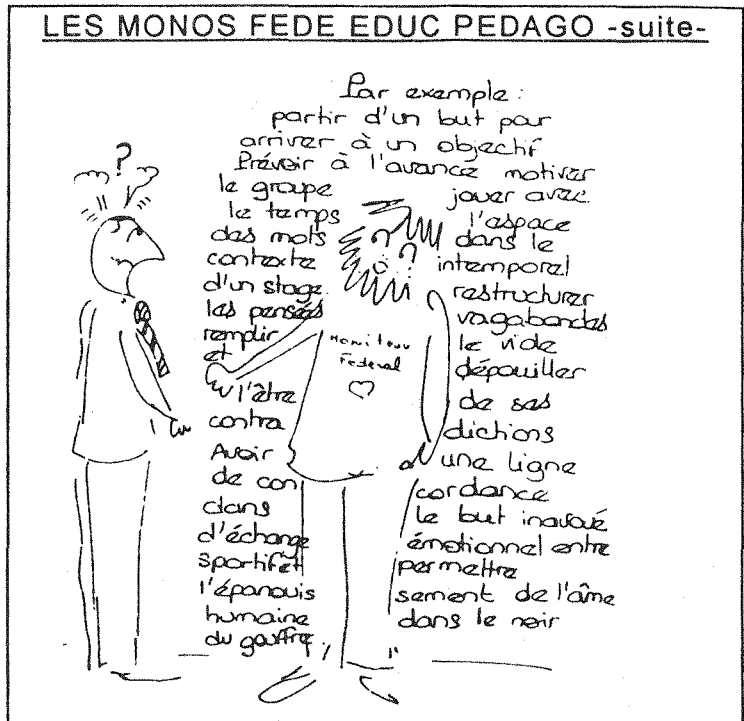 LES MONOS FEDE EDUC PEDAGO -suite-
Par exemple :
partir d'un but pour
arriver à un objectif
Prévoir à l'avance motiver
le groupe jouer avec
le temps l'espace
des mots dans le
contexte intemporel
d'un stage restructurer
les pensées vagabondes
remplir le vide
et dépouiller
l'être de ses
contra dictions
Avoir une ligne
de con cordance
dans le but inavoué
d'échange émotionnel entre
sportif et permettre
l'épanouis sement de l'âme
humaine dans le noir
du gouffre.
?
? ?
Moniteur
Federal